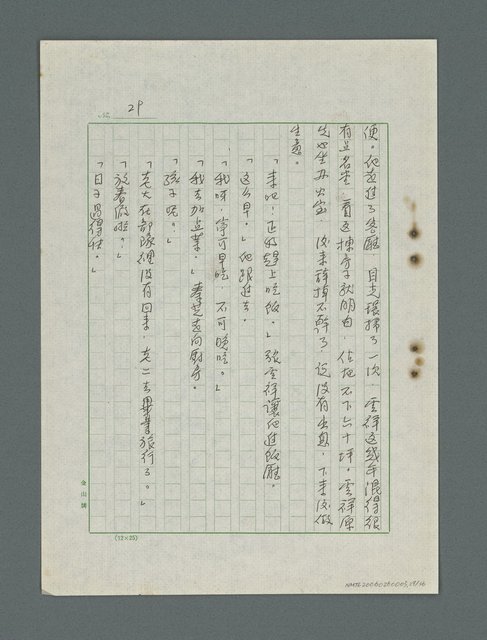 No. 29
便。他走進了客廳，目光環掃了一次，雲祥這幾年混得很
有點名堂，看這棟房子就明白，佔地不下六十坪。雲祥原
先坐辦公室，後來辭掉不幹了，說沒有出息，下來後做
生意。
「來吧！正好趕上吃飯。」張雲祥讓他進飯廳。
「這么早。」他跟進去。
「我呀！寧可早吃，不可晚吃。」
「我去加點菜。」秦芝走向廚房。
「孩子呢。」
「老大在部隊裡沒有回來，老二去畢業旅行了。」
「放春假啦。」
「日子過得快。」
金山牌
(12×25)
NMTL20000280003,29/36